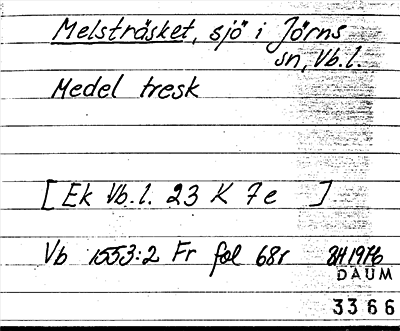 Melsträsket, sjö i Jörns
sn, Vb.l.
Medel tresk
[Ek Vb.l. 23 K 7e ]
Vb 1553:2 Fr fol 68r 1976
DAUM
3366